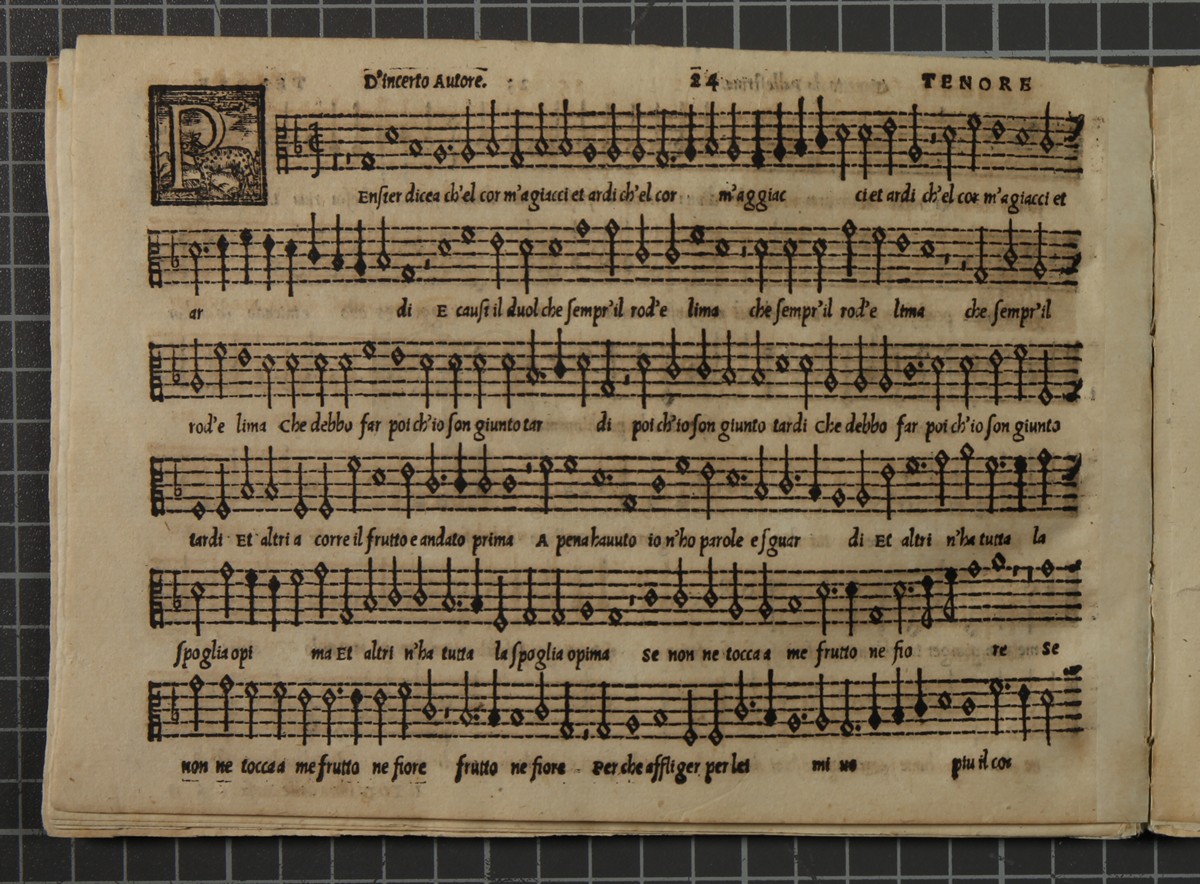 D'incerto Autore. 24 TENORE
P
Ensier dicea ch'el cor m'agiacci et ardi ch'el cor m'aggiac ci et ardi ch'el cor m'agiacci et
ar di E causi il duol che sempr'il rod'e lima che sempr'il rod'e lima che sempr'il
rod'e lima Che debbo far poi ch'io son giunto tar di poi ch'io son giunto tardi Che debbo far poi ch'io son giunto
tardi Et altri a corre il frutto e andato prima A pena hauuto io n'ho parole e sguar di Et altri n'ha tutta la
spoglia opi ma Et altri n'ha tutta la spoglia opima Se non ne tocca a me frutto ne fio re Se
non ne tocca a me frutto ne fiore frutto ne fiore Per che affliger per lei mi uo piu il cor